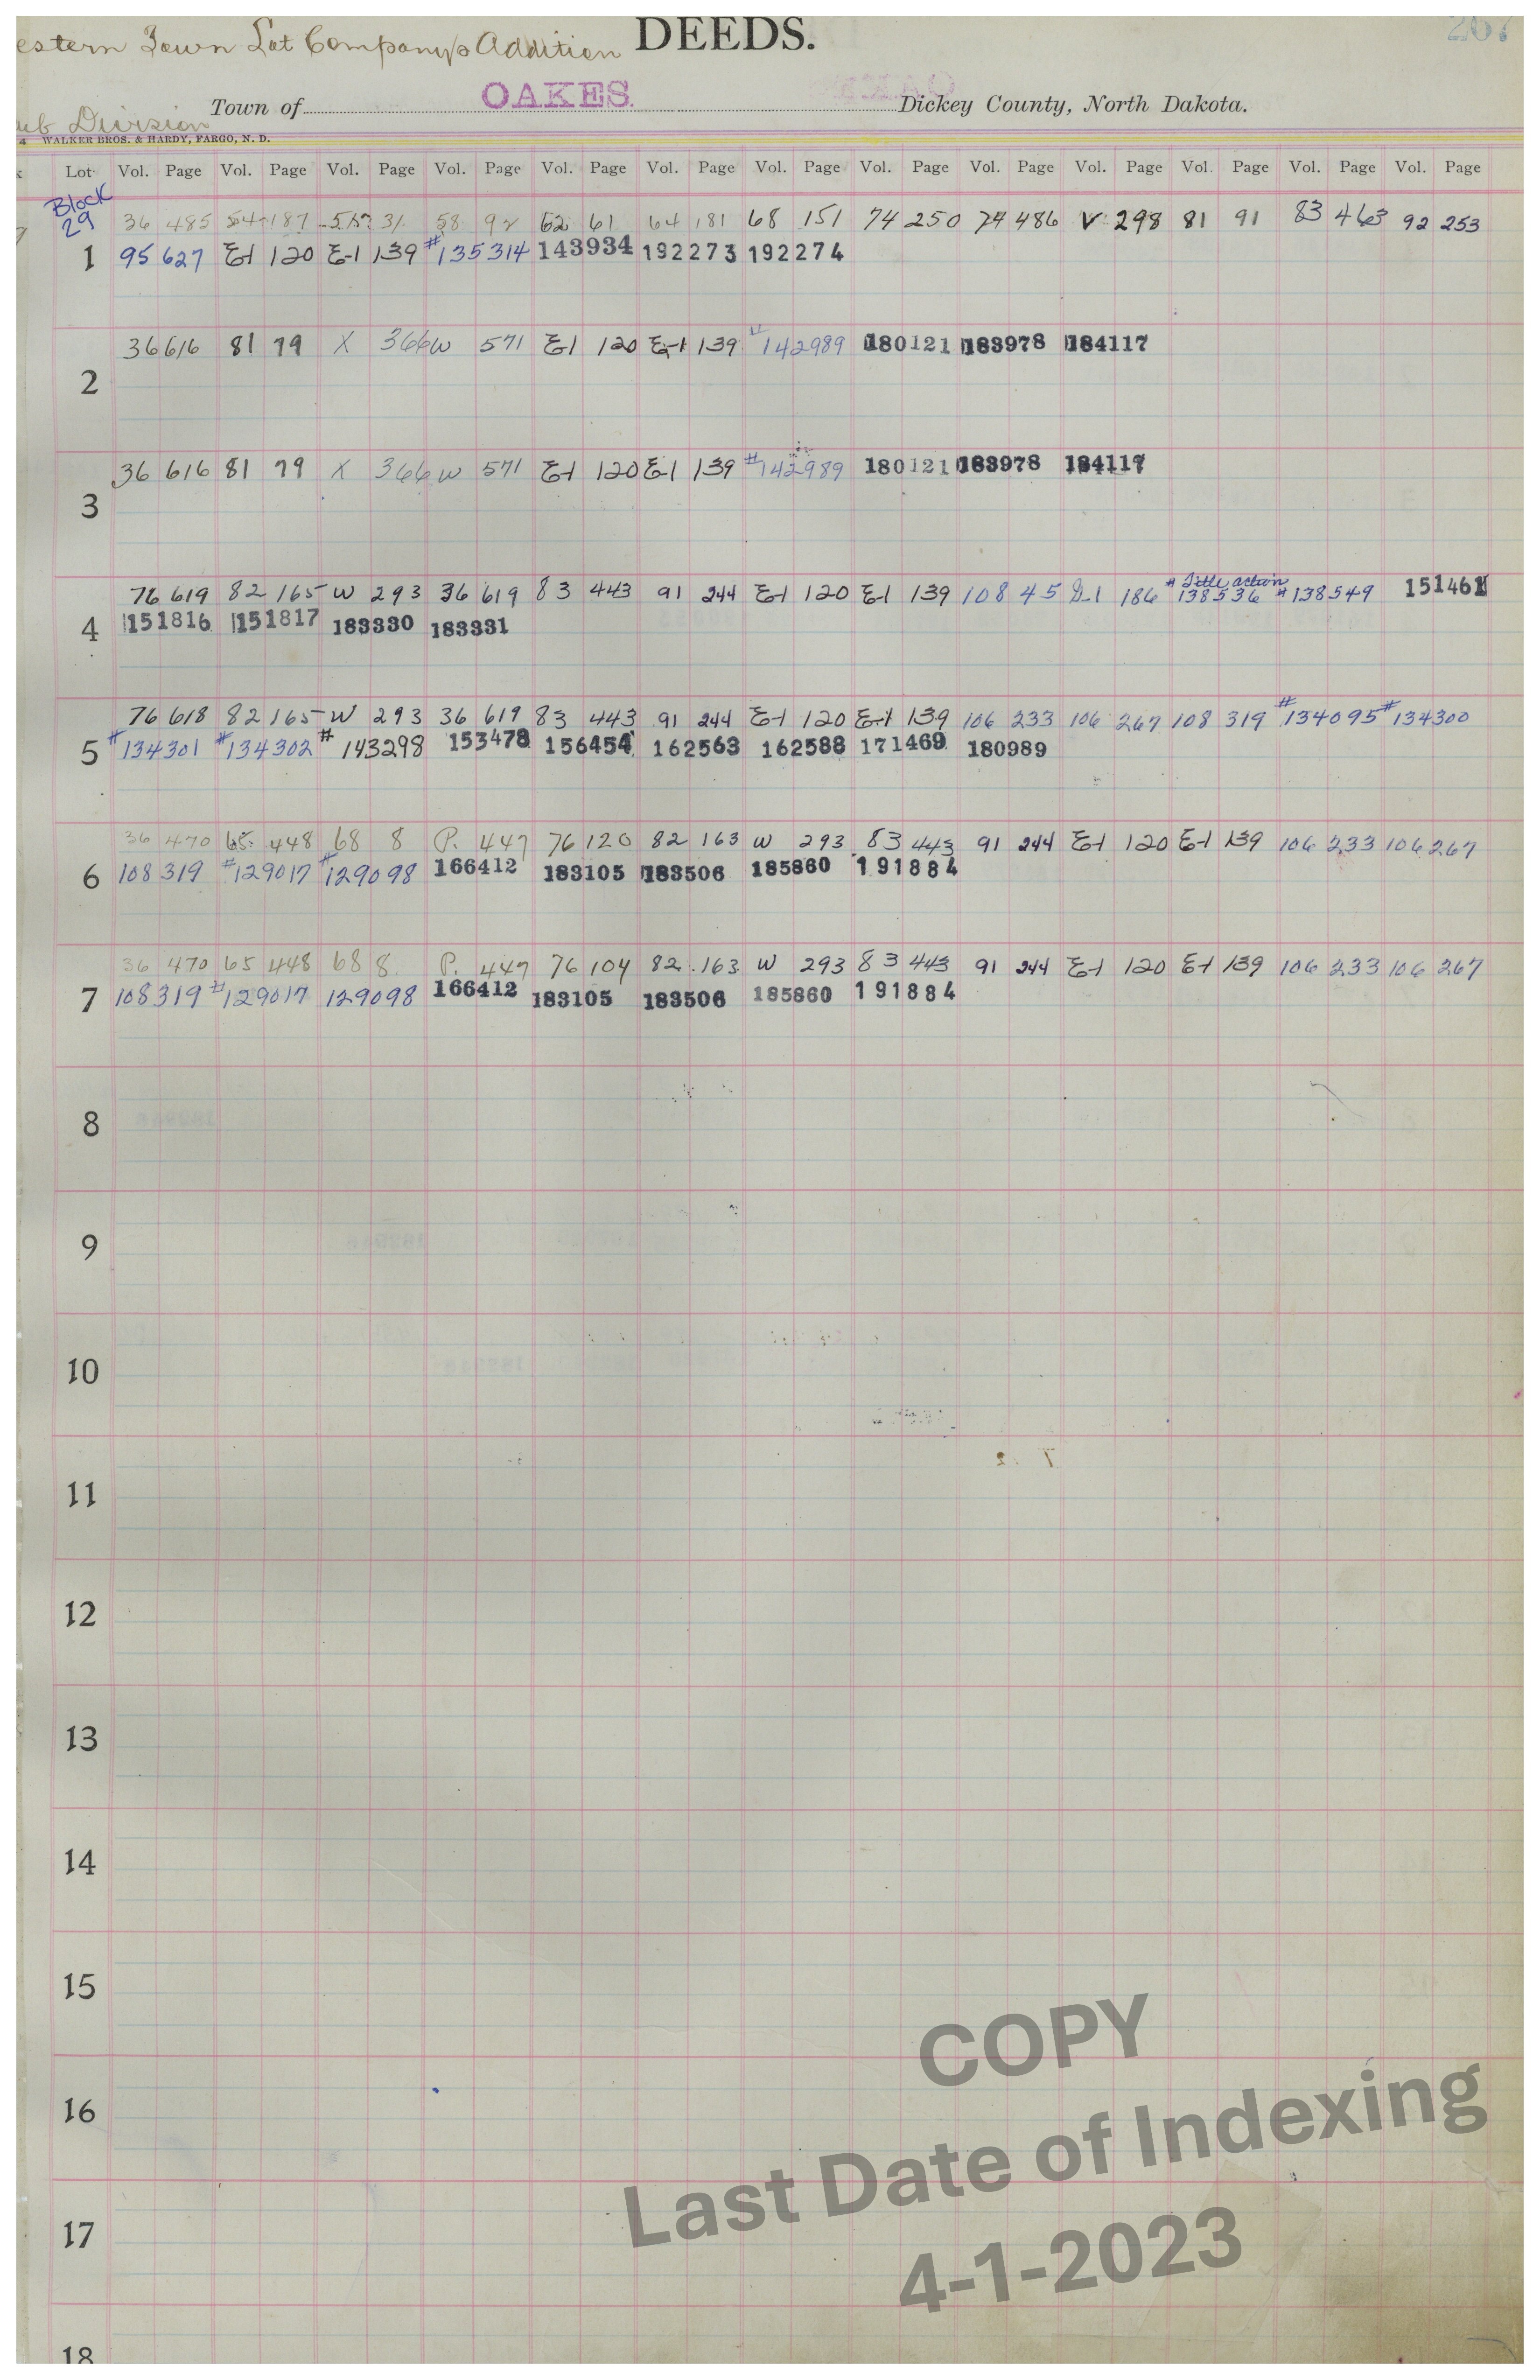 estern Town Lot Company's Addition DEEDS. 267
Town of OAKES Dickey County, North Dakota.
ub Division
4 WALKER BROS. & HARDY, FARGO, N. D.
Lot Vol. Page Vol. Page Vol. Page Vol. Page Vol. Page Vol. Page Vol. Page Vol. Page Vol. Page Vol. Page Vol. Page Vol. Page Vol. Page
Block 29
36 485 54 187 31 58 92 62 61 64 181 68 151 74 250 74 486 V 298 81 91 83 463 92 253
1 95 627 E-1 120 E-1 139 #135314 143934 192273 192274
36 616 81 79 X 366 W 571 E1 120 E-1 139 #142989 180121 183978 184117
2
36 616 81 79 X 366 W 571 E-1 120 E-1 139 #142989 180121 183978 184117
3
76 619 82 165 W 293 36 619 83 443 91 244 E-1 120 E-1 139 108 45 D-1 186 # Title action 138536 #138549 151461
4 151816 151817 183330 183331
76 618 82 165 W 293 36 619 83 443 91 244 E-1 120 E-1 139 106 233 106 267 108 319 #134095 #134300
5 #134301 #134302 #143298 153478 156454 162563 162588 171469 180989
36 470 65 448 68 8 P. 447 76 120 82 163 W 293 83 443 91 244 E-1 120 E-1 139 106 233 106 267
6 108 319 #129017 #129098 166412 183105 183506 185860 191884
36 470 65 448 68 8 P. 447 76 104 82 163 W 293 83 443 91 244 E-1 120 E-1 139 106 233 106 267
7 108 319 #129017 129098 166412 183105 183506 185860 191884
8
9
10
11
12
13
14
15
16
17
18
COPY
Last Date of Indexing
4-1-2023